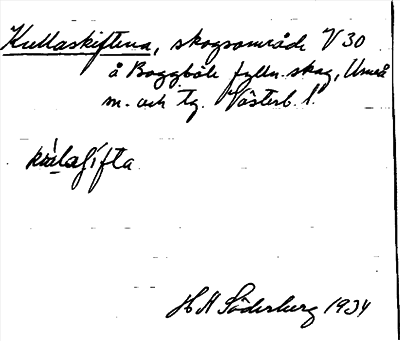 Kullaskiftena, skogsområde V 30
å Baggböle fylln. skog, Umeå
m. och tg. Västerb. l.
H H Söderberg 1934